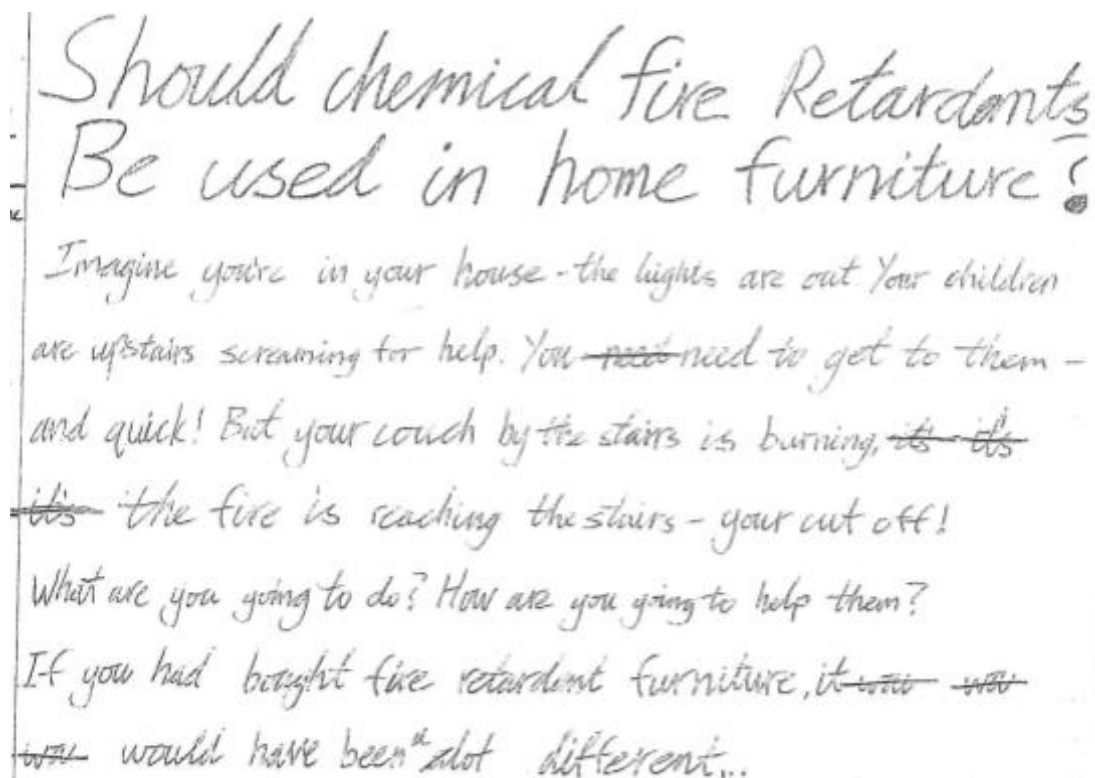 Should chemical fire Retardants
Be used in home furniture?
Imagine you're in your house - the lights are out. Your children
are upstairs screaming for help. You need need to get to them -
and quick! But your couch by the stairs is burning, its it's
it's the fire is reaching the stairs - your cut off!
What are you going to do? How are you going to help them?
If you had bought fire retardant furniture, it
would have been a alot different...